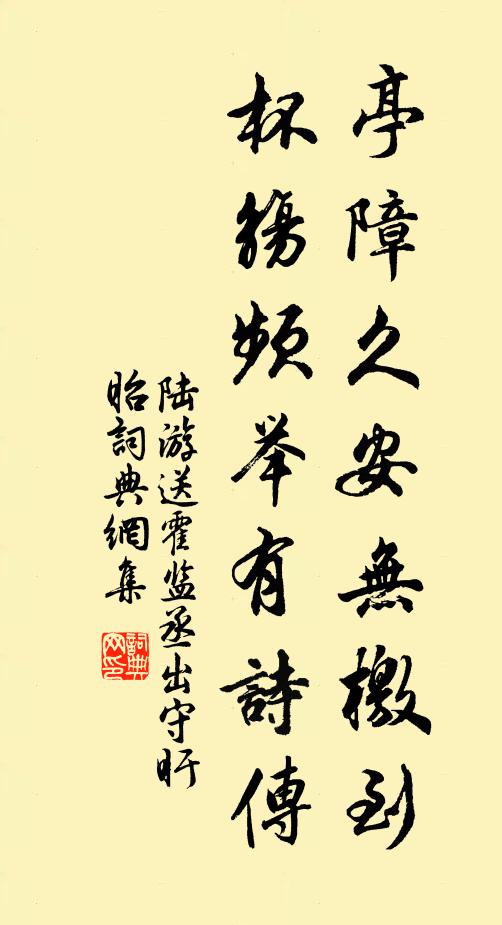 亭障久安無檄到
杯觴頻举有詩傳
陆游送霍监丞出守盱
眙詞典網集
詞典网印